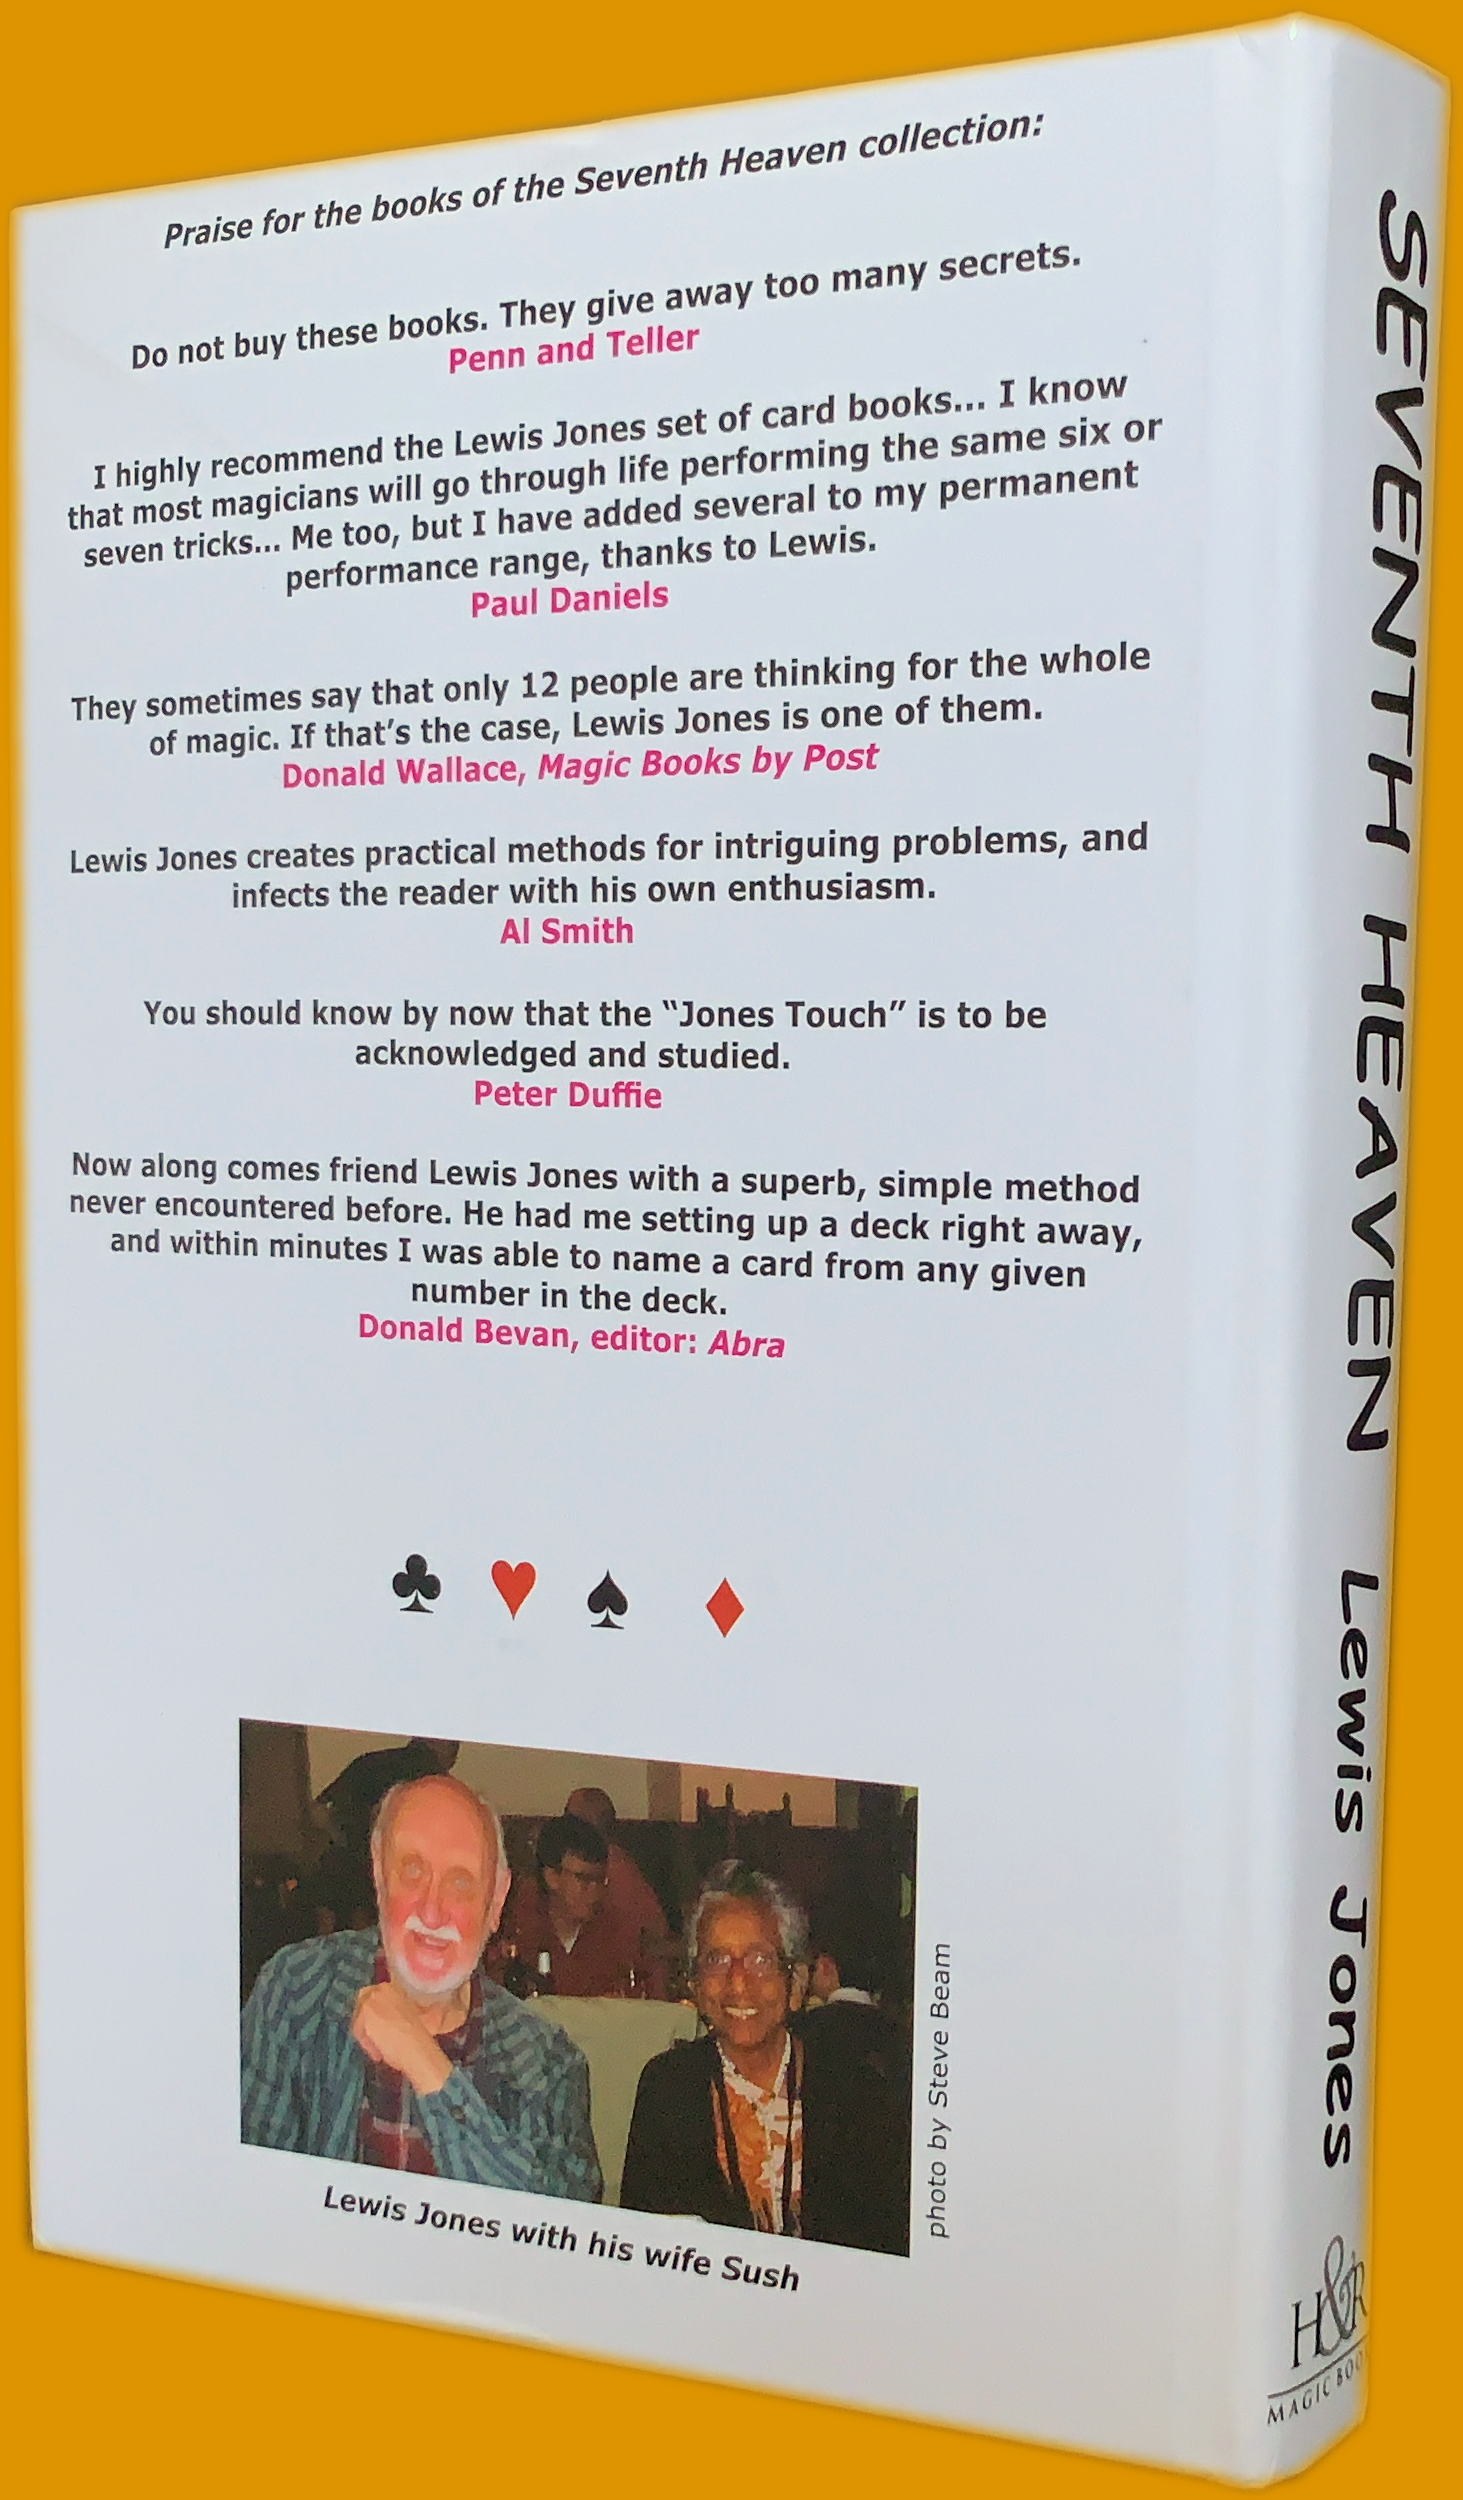 Praise for the books of the Seventh Heaven collection:
Do not buy these books. They give away too many secrets.
Penn and Teller
I highly recommend the Lewis Jones set of card books... I know
that most magicians will go through life performing the same six or
seven tricks... Me too, but I have added several to my permanent
performance range, thanks to Lewis.
Paul Daniels
They sometimes say that only 12 people are thinking for the whole
of magic. If that’s the case, Lewis Jones is one of them.
Donald Wallace, Magic Books by Post
Lewis Jones creates practical methods for intriguing problems, and
infects the reader with his own enthusiasm.
Al Smith
You should know by now that the “Jones Touch” is to be
acknowledged and studied.
Peter Duffie
Now along comes friend Lewis Jones with a superb, simple method
never encountered before. He had me setting up a deck right away,
and within minutes I was able to name a card from any given
number in the deck.
Donald Bevan, editor: Abra
photo by Steve Beam
Lewis Jones with his wife Sush
SEVENTH HEAVEN Lewis Jones
H&R
MAGIC